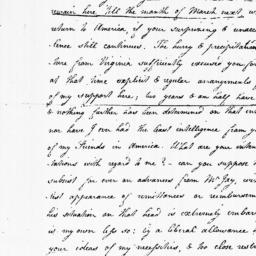 remain here 'till the month of March next w
return to America, if your surprising & unacc
lence still continues. The hurry & precipitation
ture from Virginia sufficiently excused you for
at that time explicit & regular arrangements
of my support here, two years & an half have
& nothing farther has been determined on that su
nor have I ever had the least intelligence from y
of my Friends in America. What are your inten
tations with regard to me? - can you suppose
subsist for ever on advances from Mr. Jay, with
tist appearance of remittances or reimbursem
his situation on that head is extremely embar
is my own less so: by a liberal allowance
your ideas of my necessities, & too close rest